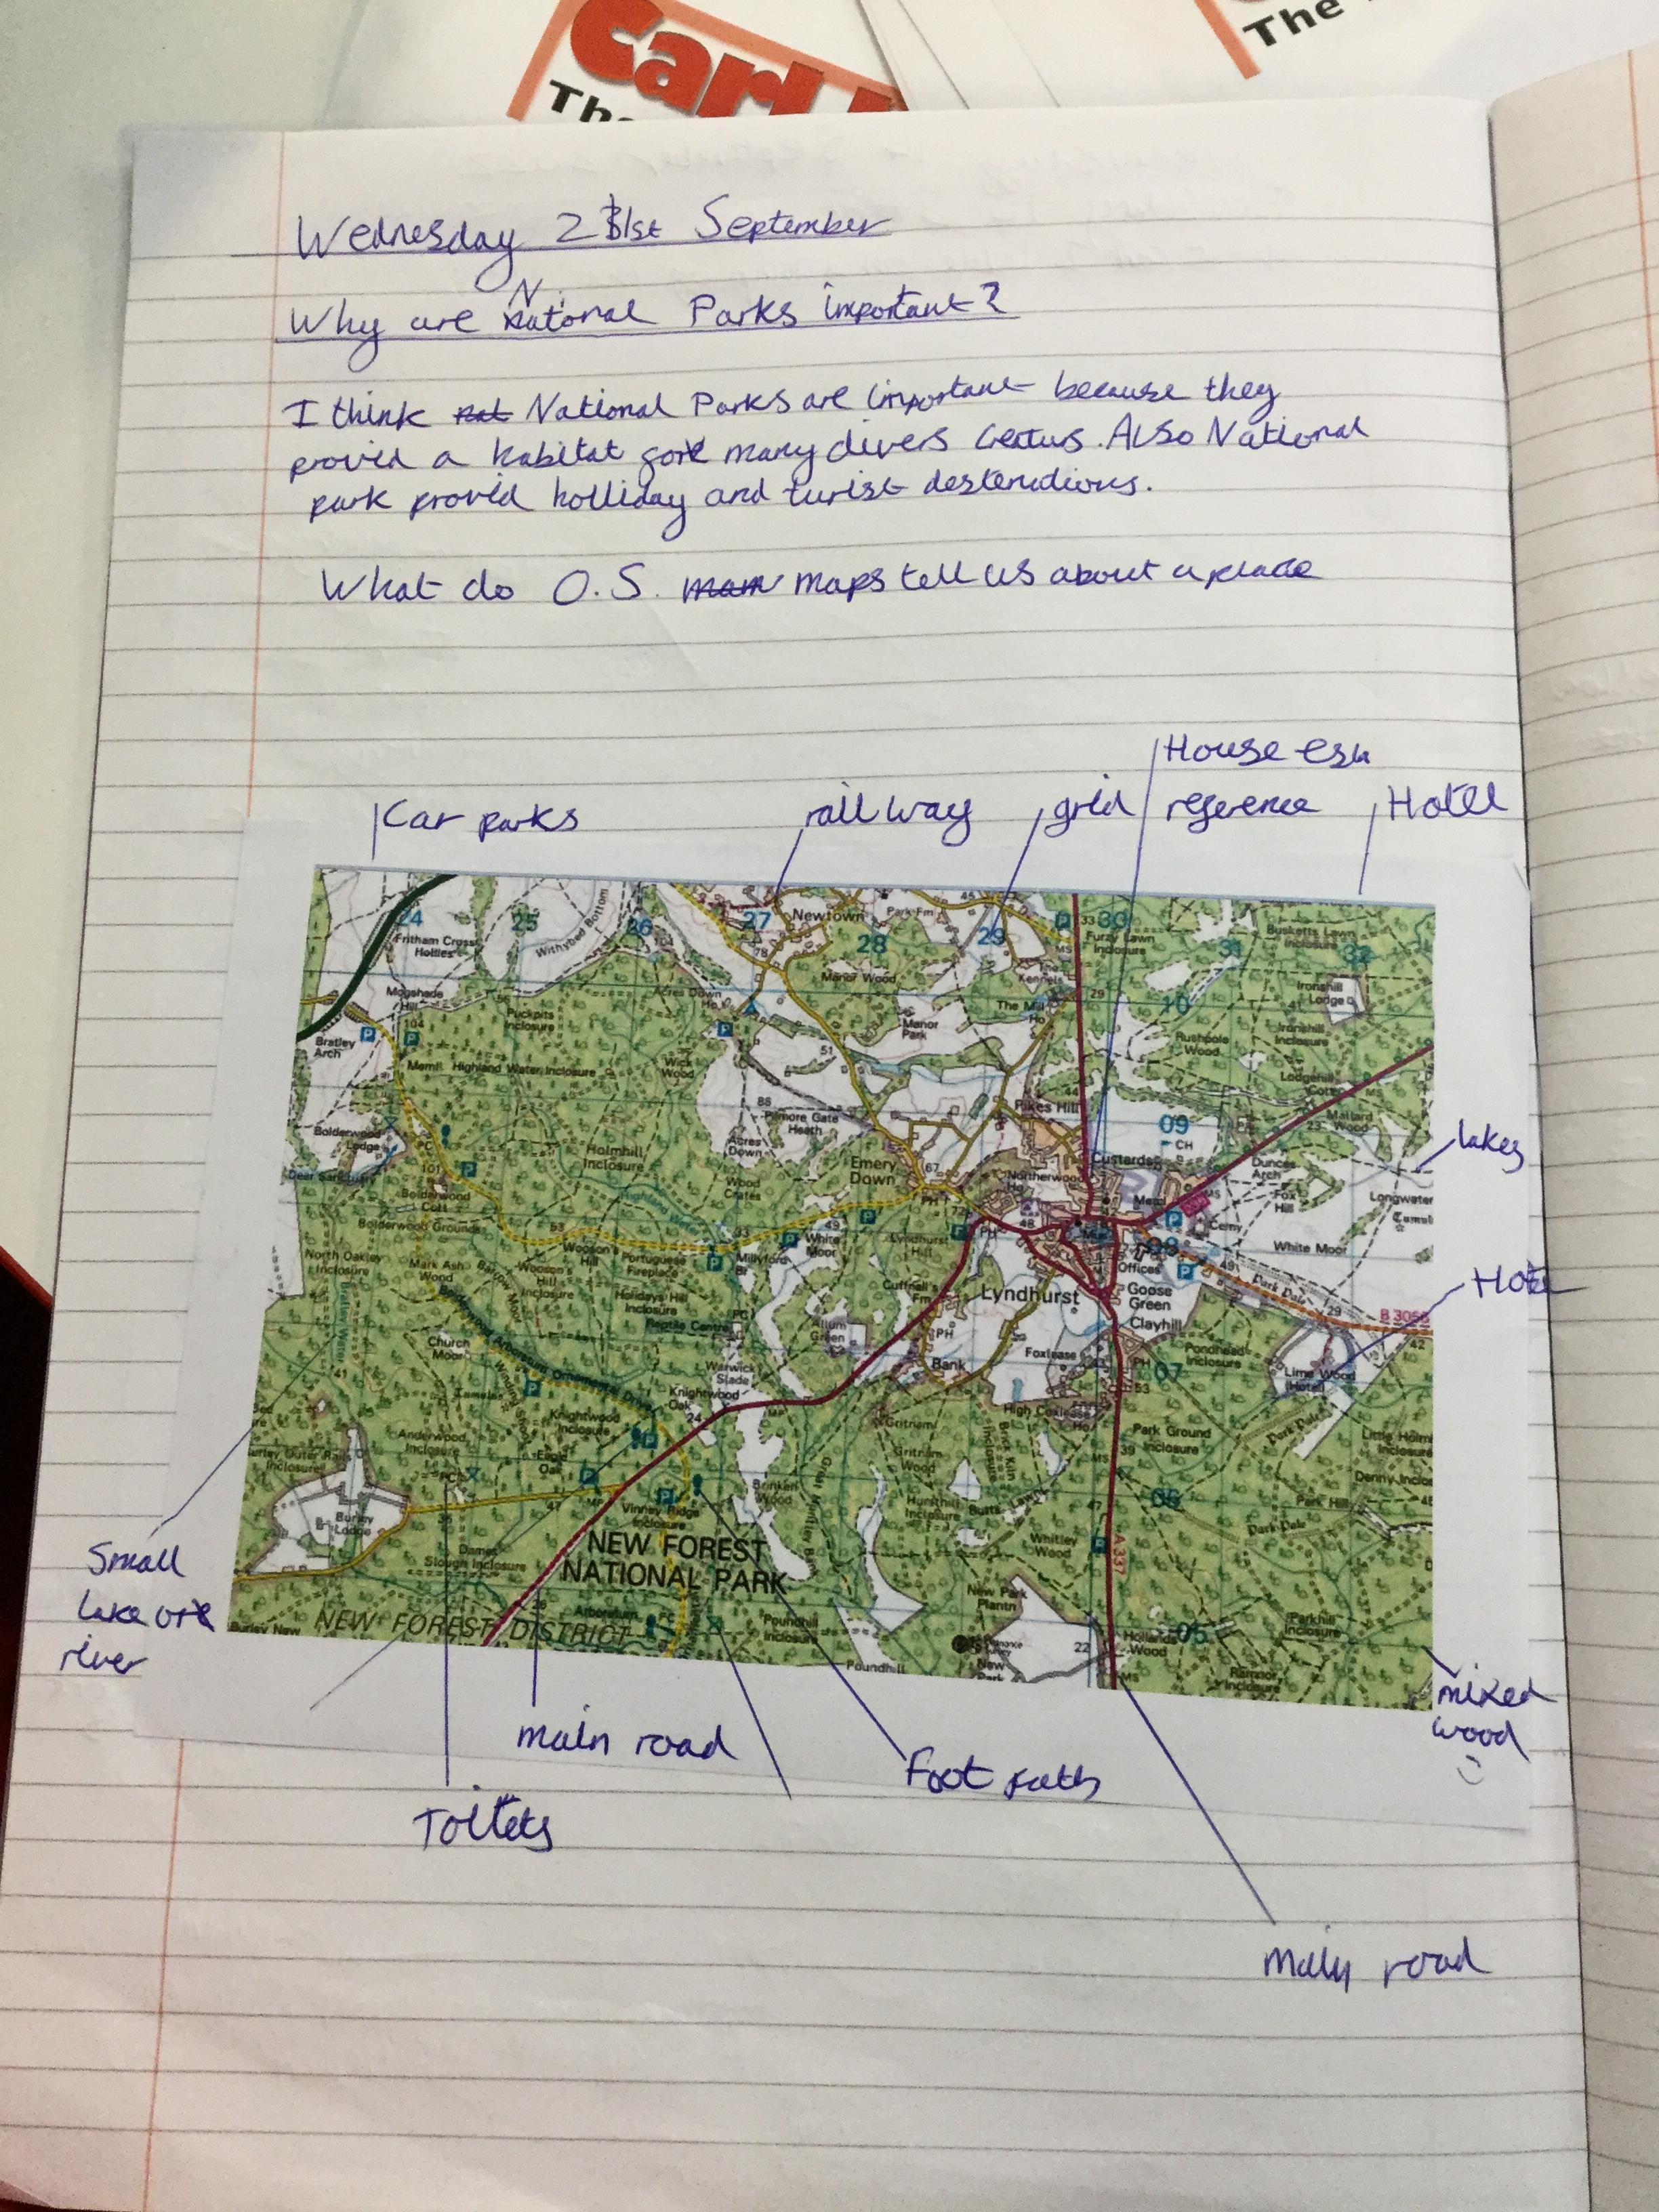 The
The
Wednesday 21st September
Why are National Parks important?
I think National Parks are important because they
provid a habitat for many divers creturs. Also National
park provid holliday and turist destenations.
What do O.S. maps tell us about a place
House
Car parks
rail way
grid reference
Hotel
24
25
26
27
28
29
30
31
32
Newtown
Park Fm
Withybed Bottom
Fritham Cross
Hollies
Furzy Lawn
Inclosure
Busketts Lawn
Inclosure
Manor Wood
Kennels
Mogshade
Hill
Acres Down
Ho
The Mill
Ho
Ironshill
Lodge
10
Puckpits
Inclosure
Manor
Park
Bratley
Arch
Rushpole
Wood
Ironshill
Inclosure
Meml
Highland Water Inclosure
Wick
Wood
Lodgehill
Cotts
Pikes Hill
Mallard
Wood
Pilmore Gate
Heath
09
CH
Bolderwood
Lodge
Acres
Down
Holmhill
Inclosure
Emery
Down
Custards
Dunces
Arch
lakes
Deer Sanctuary
Wood
Crates
Northerwood
Ho
Fox
Hill
Longwater
Bolderwood
Cott
Bolderwood Grounds
Highland Water
Cemy
White Moor
North Oakley
Inclosure
Mark Ash
Wood
Wooson's
Hill
Portuguese
Fireplace
Millyford
Br
White
Moor
Lyndhurst
Hill
08
Offices
Park Pale
Hotel
Wooson's
Hill
Inclosure
Holidays Hill
Inclosure
Reptile Centre
Cuffnell's
Fm
Lyndhurst
Goose
Green
Clayhill
B 3056
Bolderwood Arboretum Ornamental Drive
Church
Moor
Allum
Green
PH
Bank
Foxlease
07
Pondhead
Inclosure
Lime Wood
(Hotel)
Warwick
Slade
Knightwood
Oak
High Coxlease
Ho
Knightwood
Inclosure
Gritnam
Park Ground
Inclosure
Park Pale
Anderwood
Inclosure
Eagle
Oak
Gritnam
Wood
Burley Outer Rails
Inclosure
Brinken
Wood
06
Park Hill
Burley
Lodge
Vinney Ridge
Inclosure
Hursthill
Inclosure
Butts Lawn
Whitley
Wood
Park Pale
A 337
Dames
Slough Inclosure
NEW FOREST
NATIONAL PARK
New Park
Plantn
Small
lake or
river
NEW FOREST DISTRICT
Arboretum
Poundhill
Inclosure
Hollands
Wood
05
Parkhill
Inclosure
Burley New
Poundhill
New
Park
mixed
wood
main road
Foot path
Toilets
main road